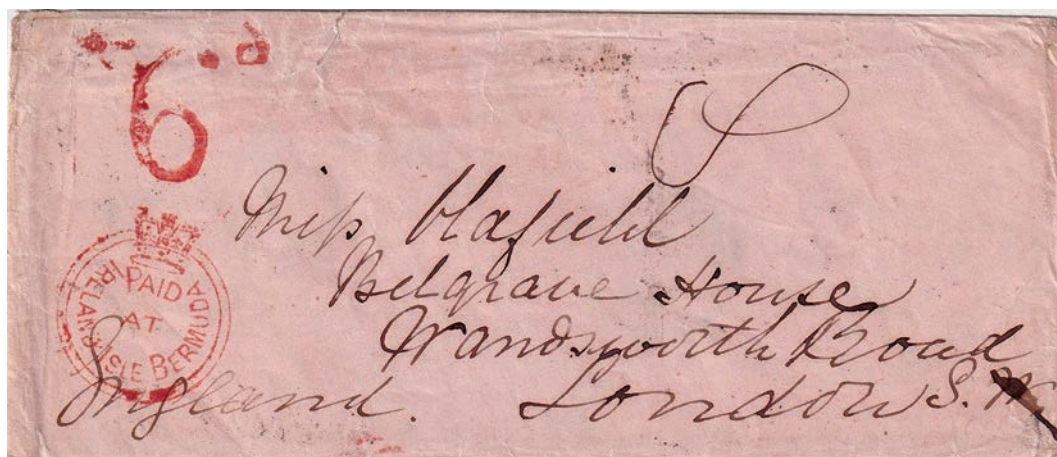 6d
PAID
AT
IRELAND ISLE BERMUDA
Miss
Belgrave House
Wandsworth Road
London S.W.
England.